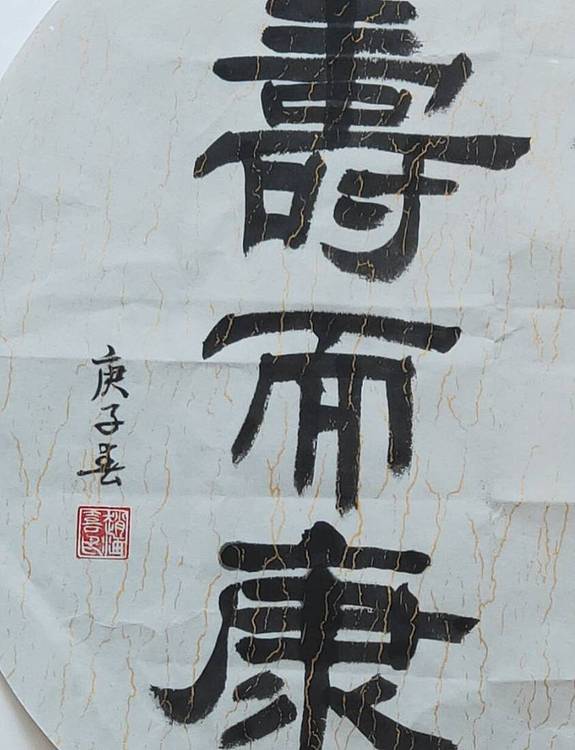 壽而康
庚子春